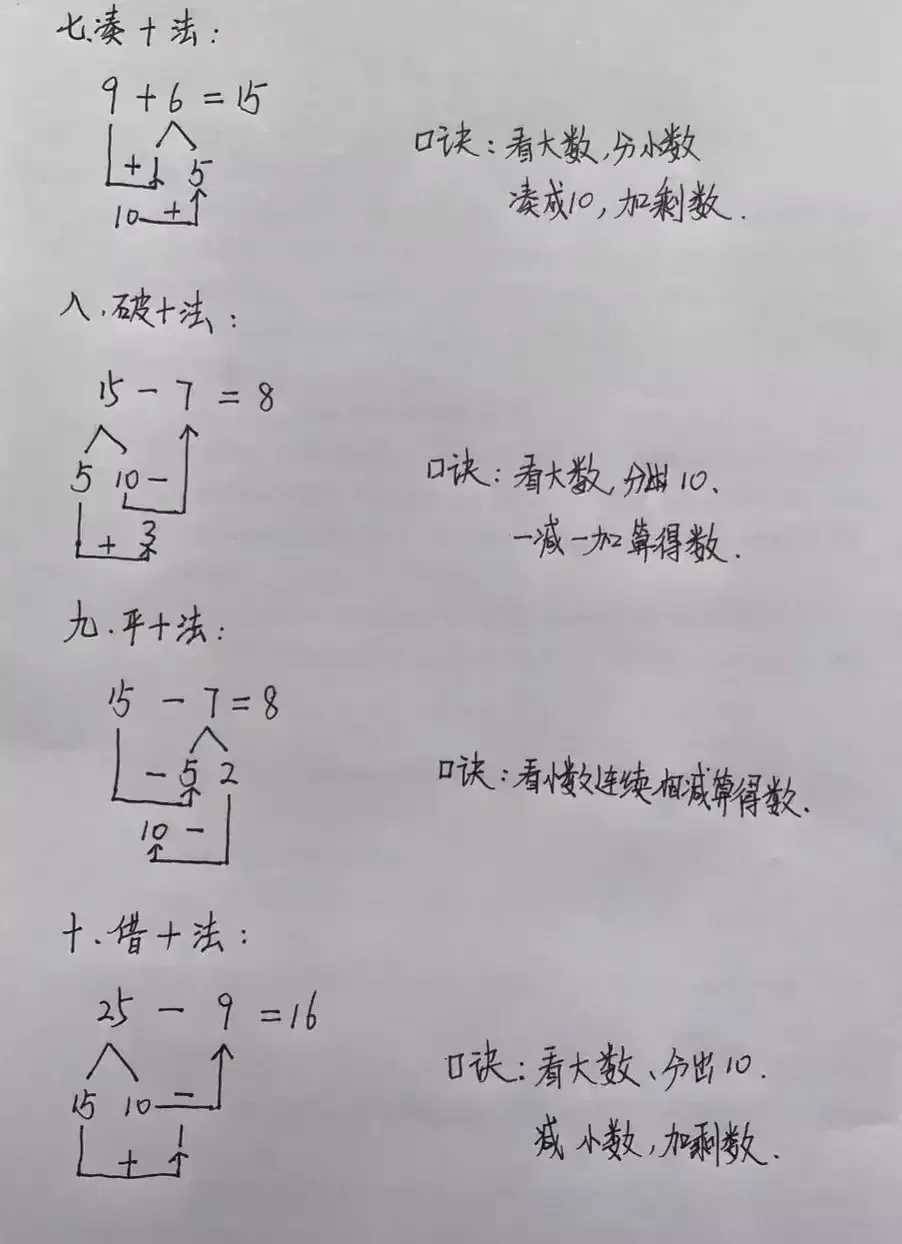 七.凑十法:
9+6=15
+ 1 5
10 +
口诀:看大数,分小数
凑成10,加剩数.
八.破十法:
15-7=8
5 10-
+ 3
口诀:看大数,分出10、
一减一加算得数.
九.平十法:
15-7=8
-5 2
10-
口诀:看小数连续相减算得数.
十.借十法:
25-9=16
15 10-
+
口诀:看大数、分出10.
减小数,加剩数.